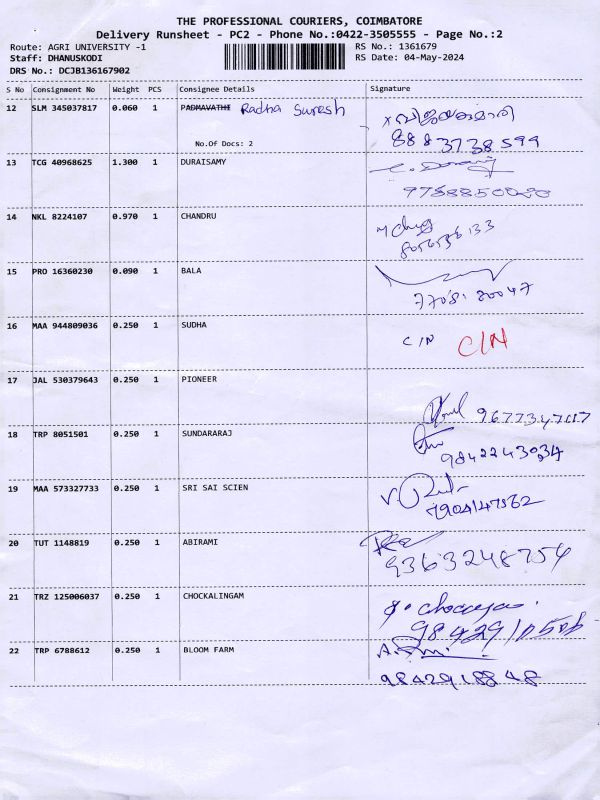 THE PROFESSIONAL COURIERS, COIMBATORE
Delivery Runsheet - PC2 - Phone No.:0422-3505555 - Page No.:2
Route: AGRI UNIVERSITY -1 RS No.: 1361679
Staff: DHANUSKODI RS Date: 04-May-2024
DRS No.: DCJB136167902
S No Consignment No Weight PCS Consignee Details Signature
12 SLM 345037817 0.060 1 PADMAVATHI Radha Suresh
No.Of Docs: 2 8883738599
13 TCG 40968625 1.300 1 DURAISAMY
14 NKL 8224107 0.970 1 CHANDRU
15 PRO 16360230 0.090 1 BALA
77081 80047
16 MAA 944809036 0.250 1 SUDHA C/N C/N
17 JAL 530379643 0.250 1 PIONEER
18 TRP 8051501 0.250 1 SUNDARARAJ
9842243034
19 MAA 573327733 0.250 1 SRI SAI SCIEN
20 TUT 1148819 0.250 1 ABIRAMI
9363248754
21 TRZ 125006037 0.250 1 CHOCKALINGAM
22 TRP 6788612 0.250 1 BLOOM FARM
9842918848